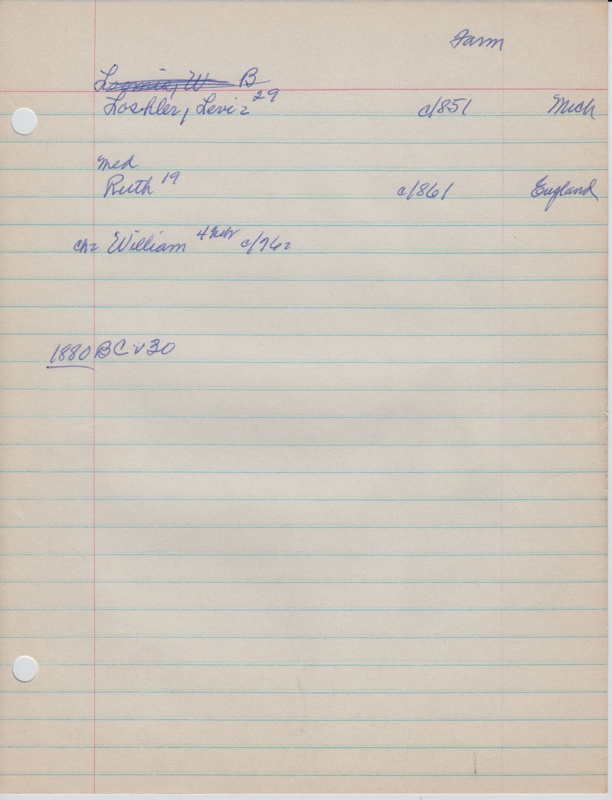 Farm
Loomis, W B
Loshler, Levi z 29 c/851 Mich
med
Ruth 19 c/861 England
ch= William 4 c/76z
1880 BC v30